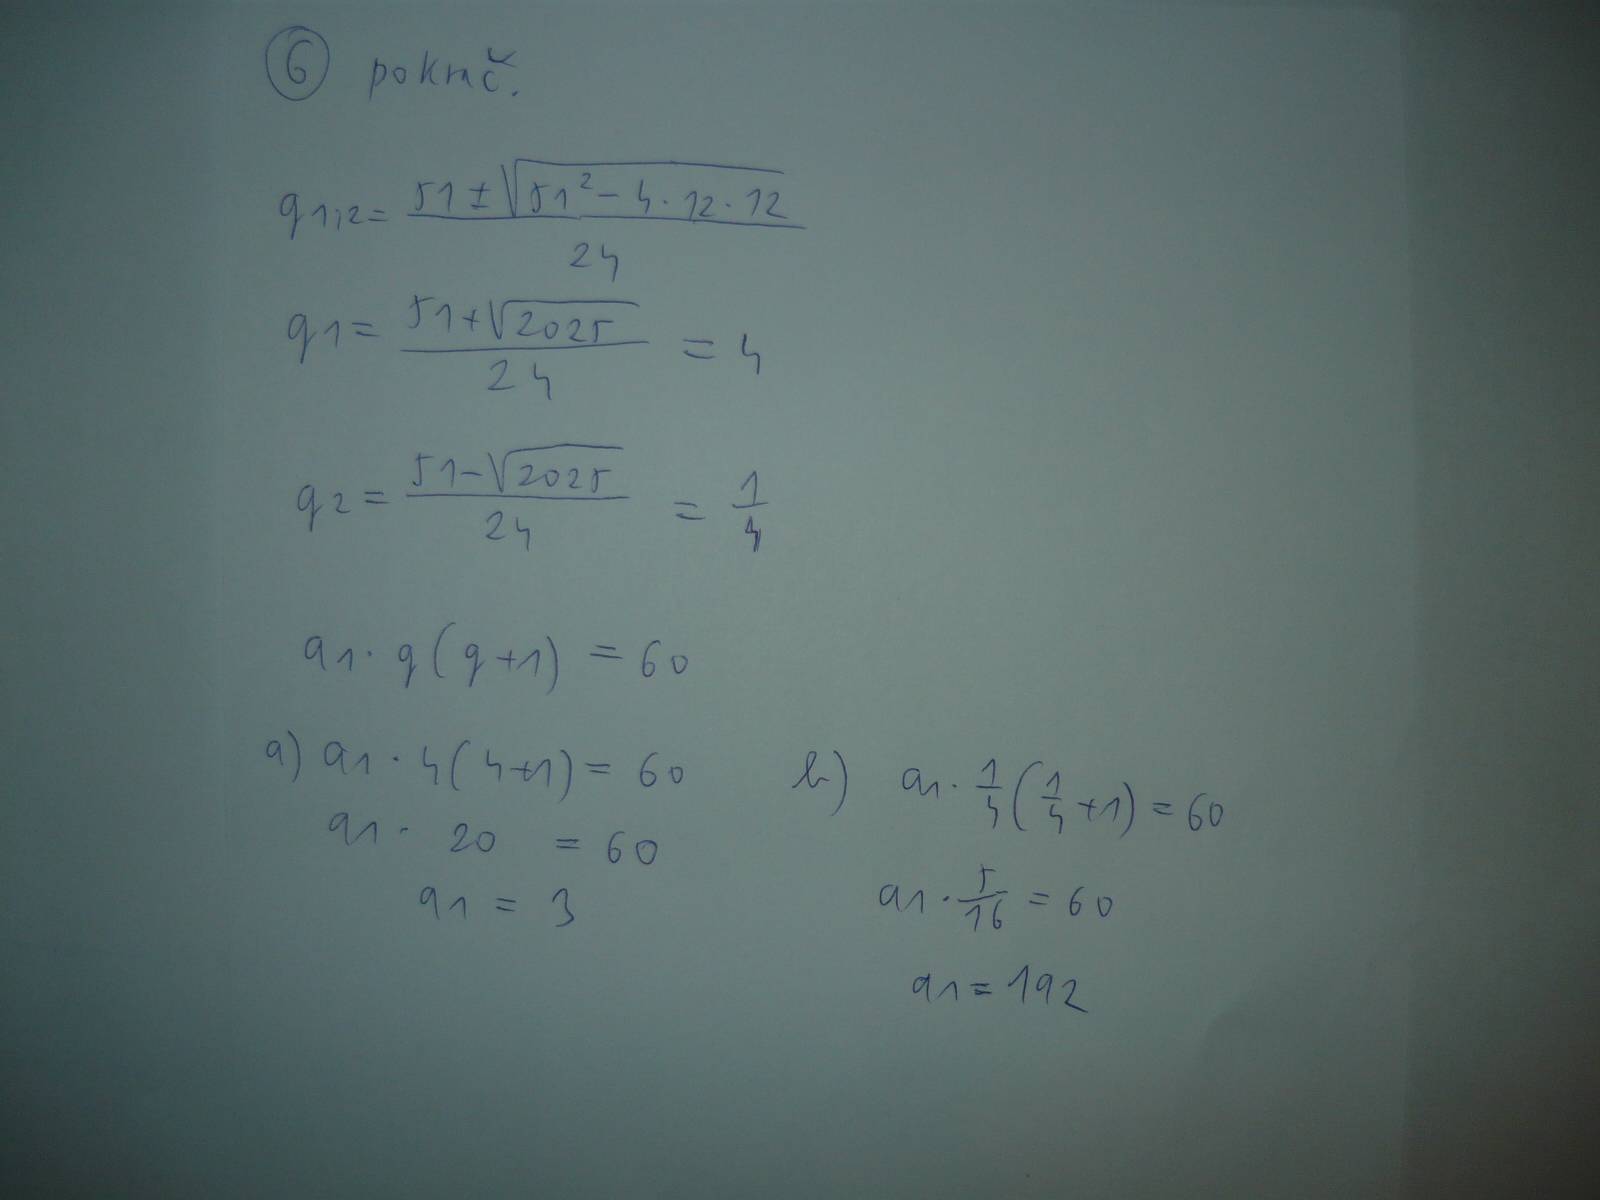 6 pokrač.
q1,2 = (51 ± √(51² - 4 · 12 · 12)) / 24
q1 = (51 + √2025) / 24 = 4
q2 = (51 - √2025) / 24 = 1/4
a1 · q (q + 1) = 60
a) a1 · 4 (4 + 1) = 60
a1 · 20 = 60
a1 = 3
b) a1 · 1/4 (1/4 + 1) = 60
a1 · 5/16 = 60
a1 = 192